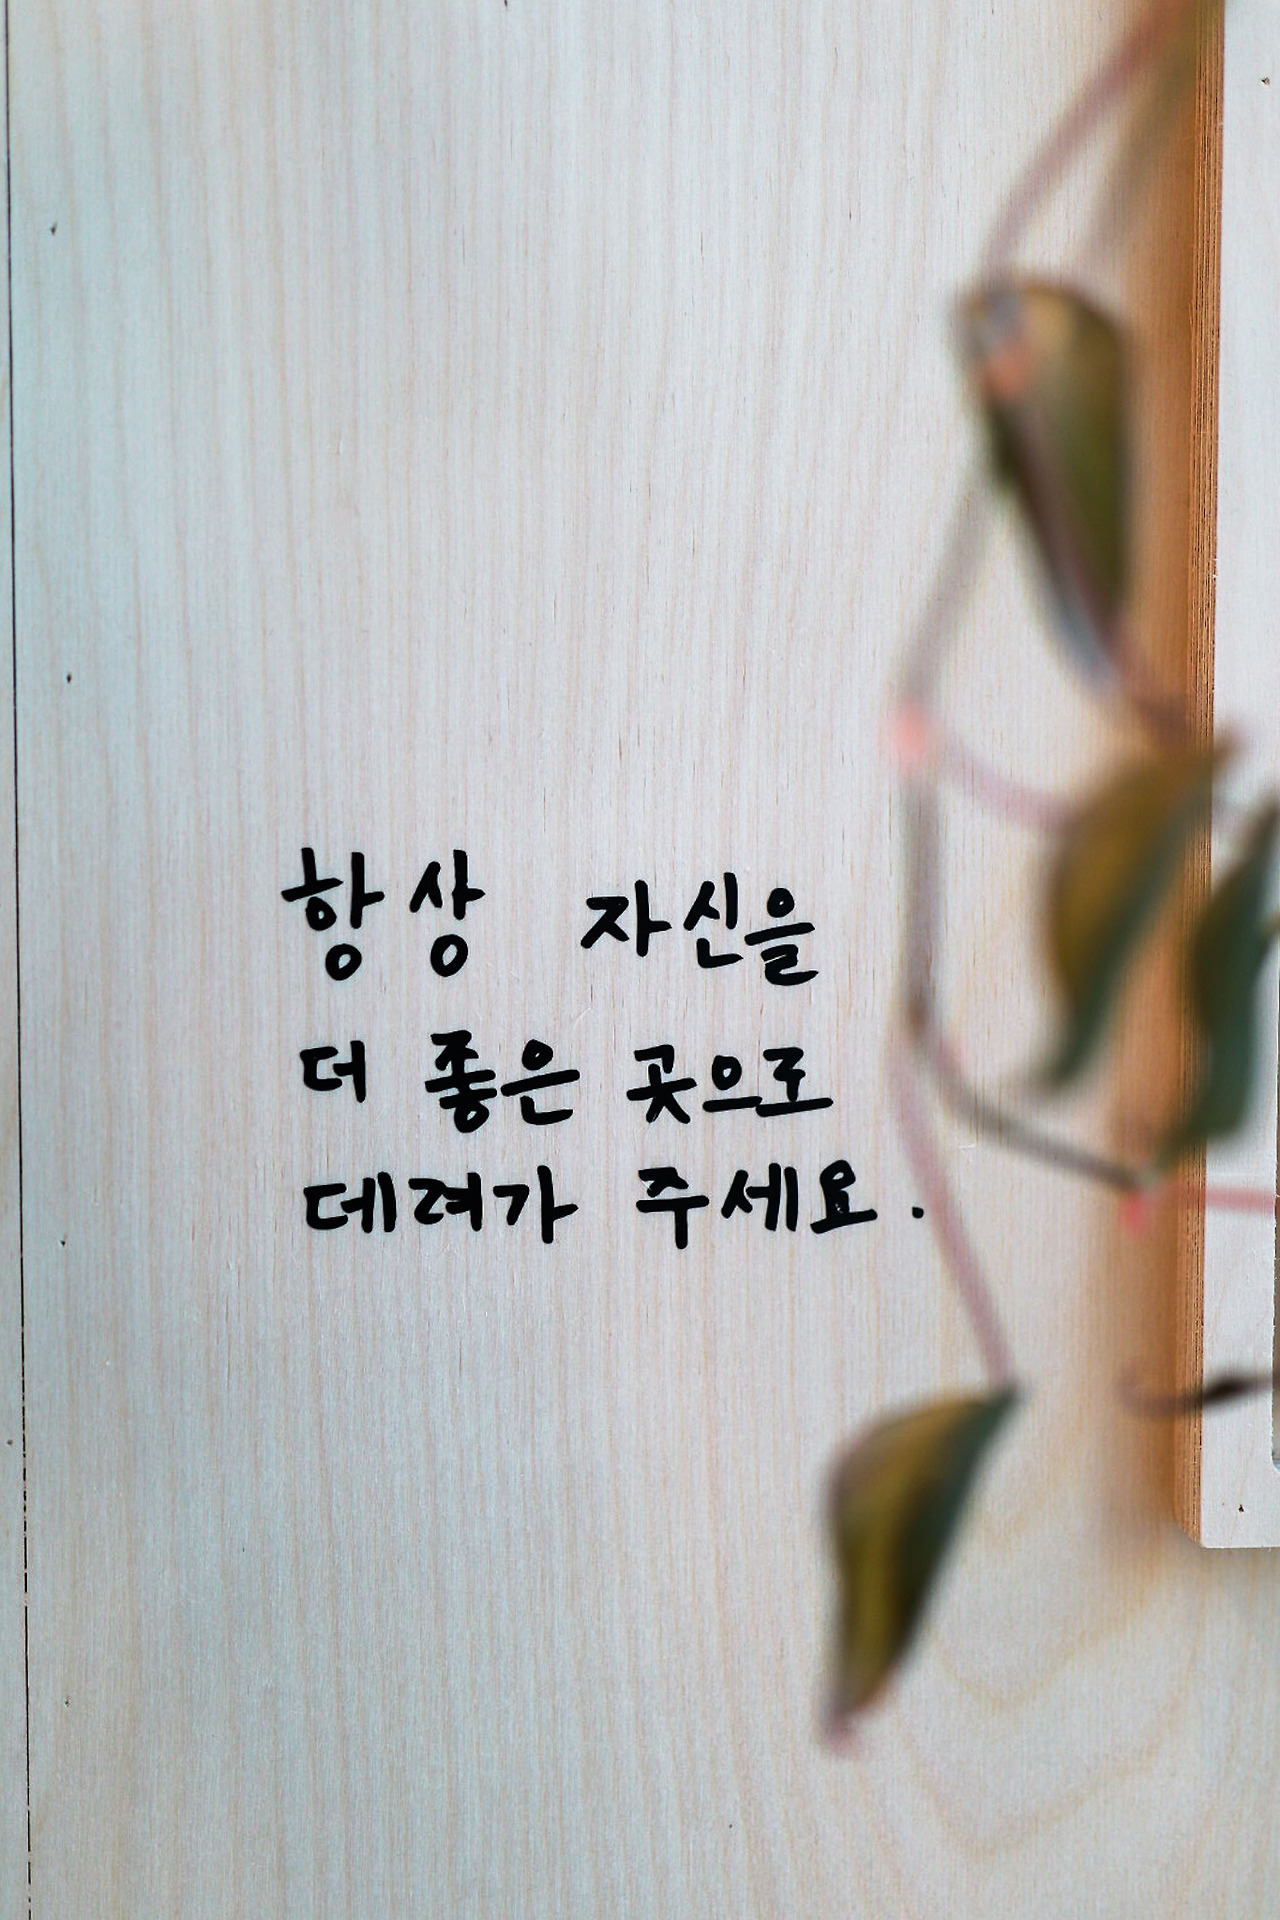 항상 자신을
더 좋은 곳으로
데려가 주세요.